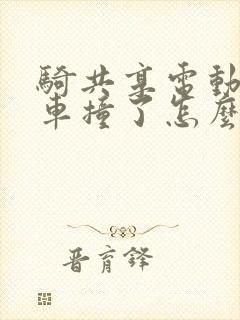 騎共享電動
車撞了怎麼
晉育鋒